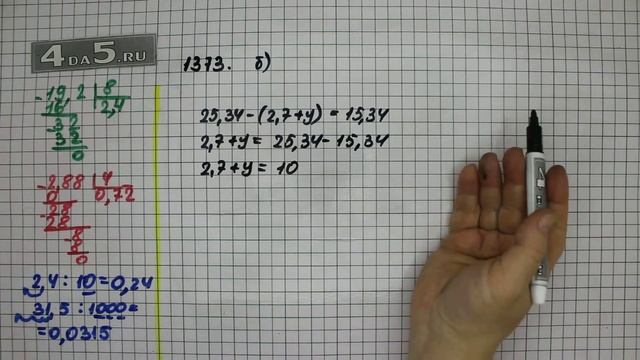 4DA5.RU
1373. б)
25,34-(2,7+y)=15,34
2,7+y= 25,34-15,34
2,7+y= 10
-19,2 | 8
16, | 2,4
-32
32
0
-2,88 | 4
0 | 0,72
-28
28
-8
8
0
2,4:10=0,24
31,5:1000=
=0,0315